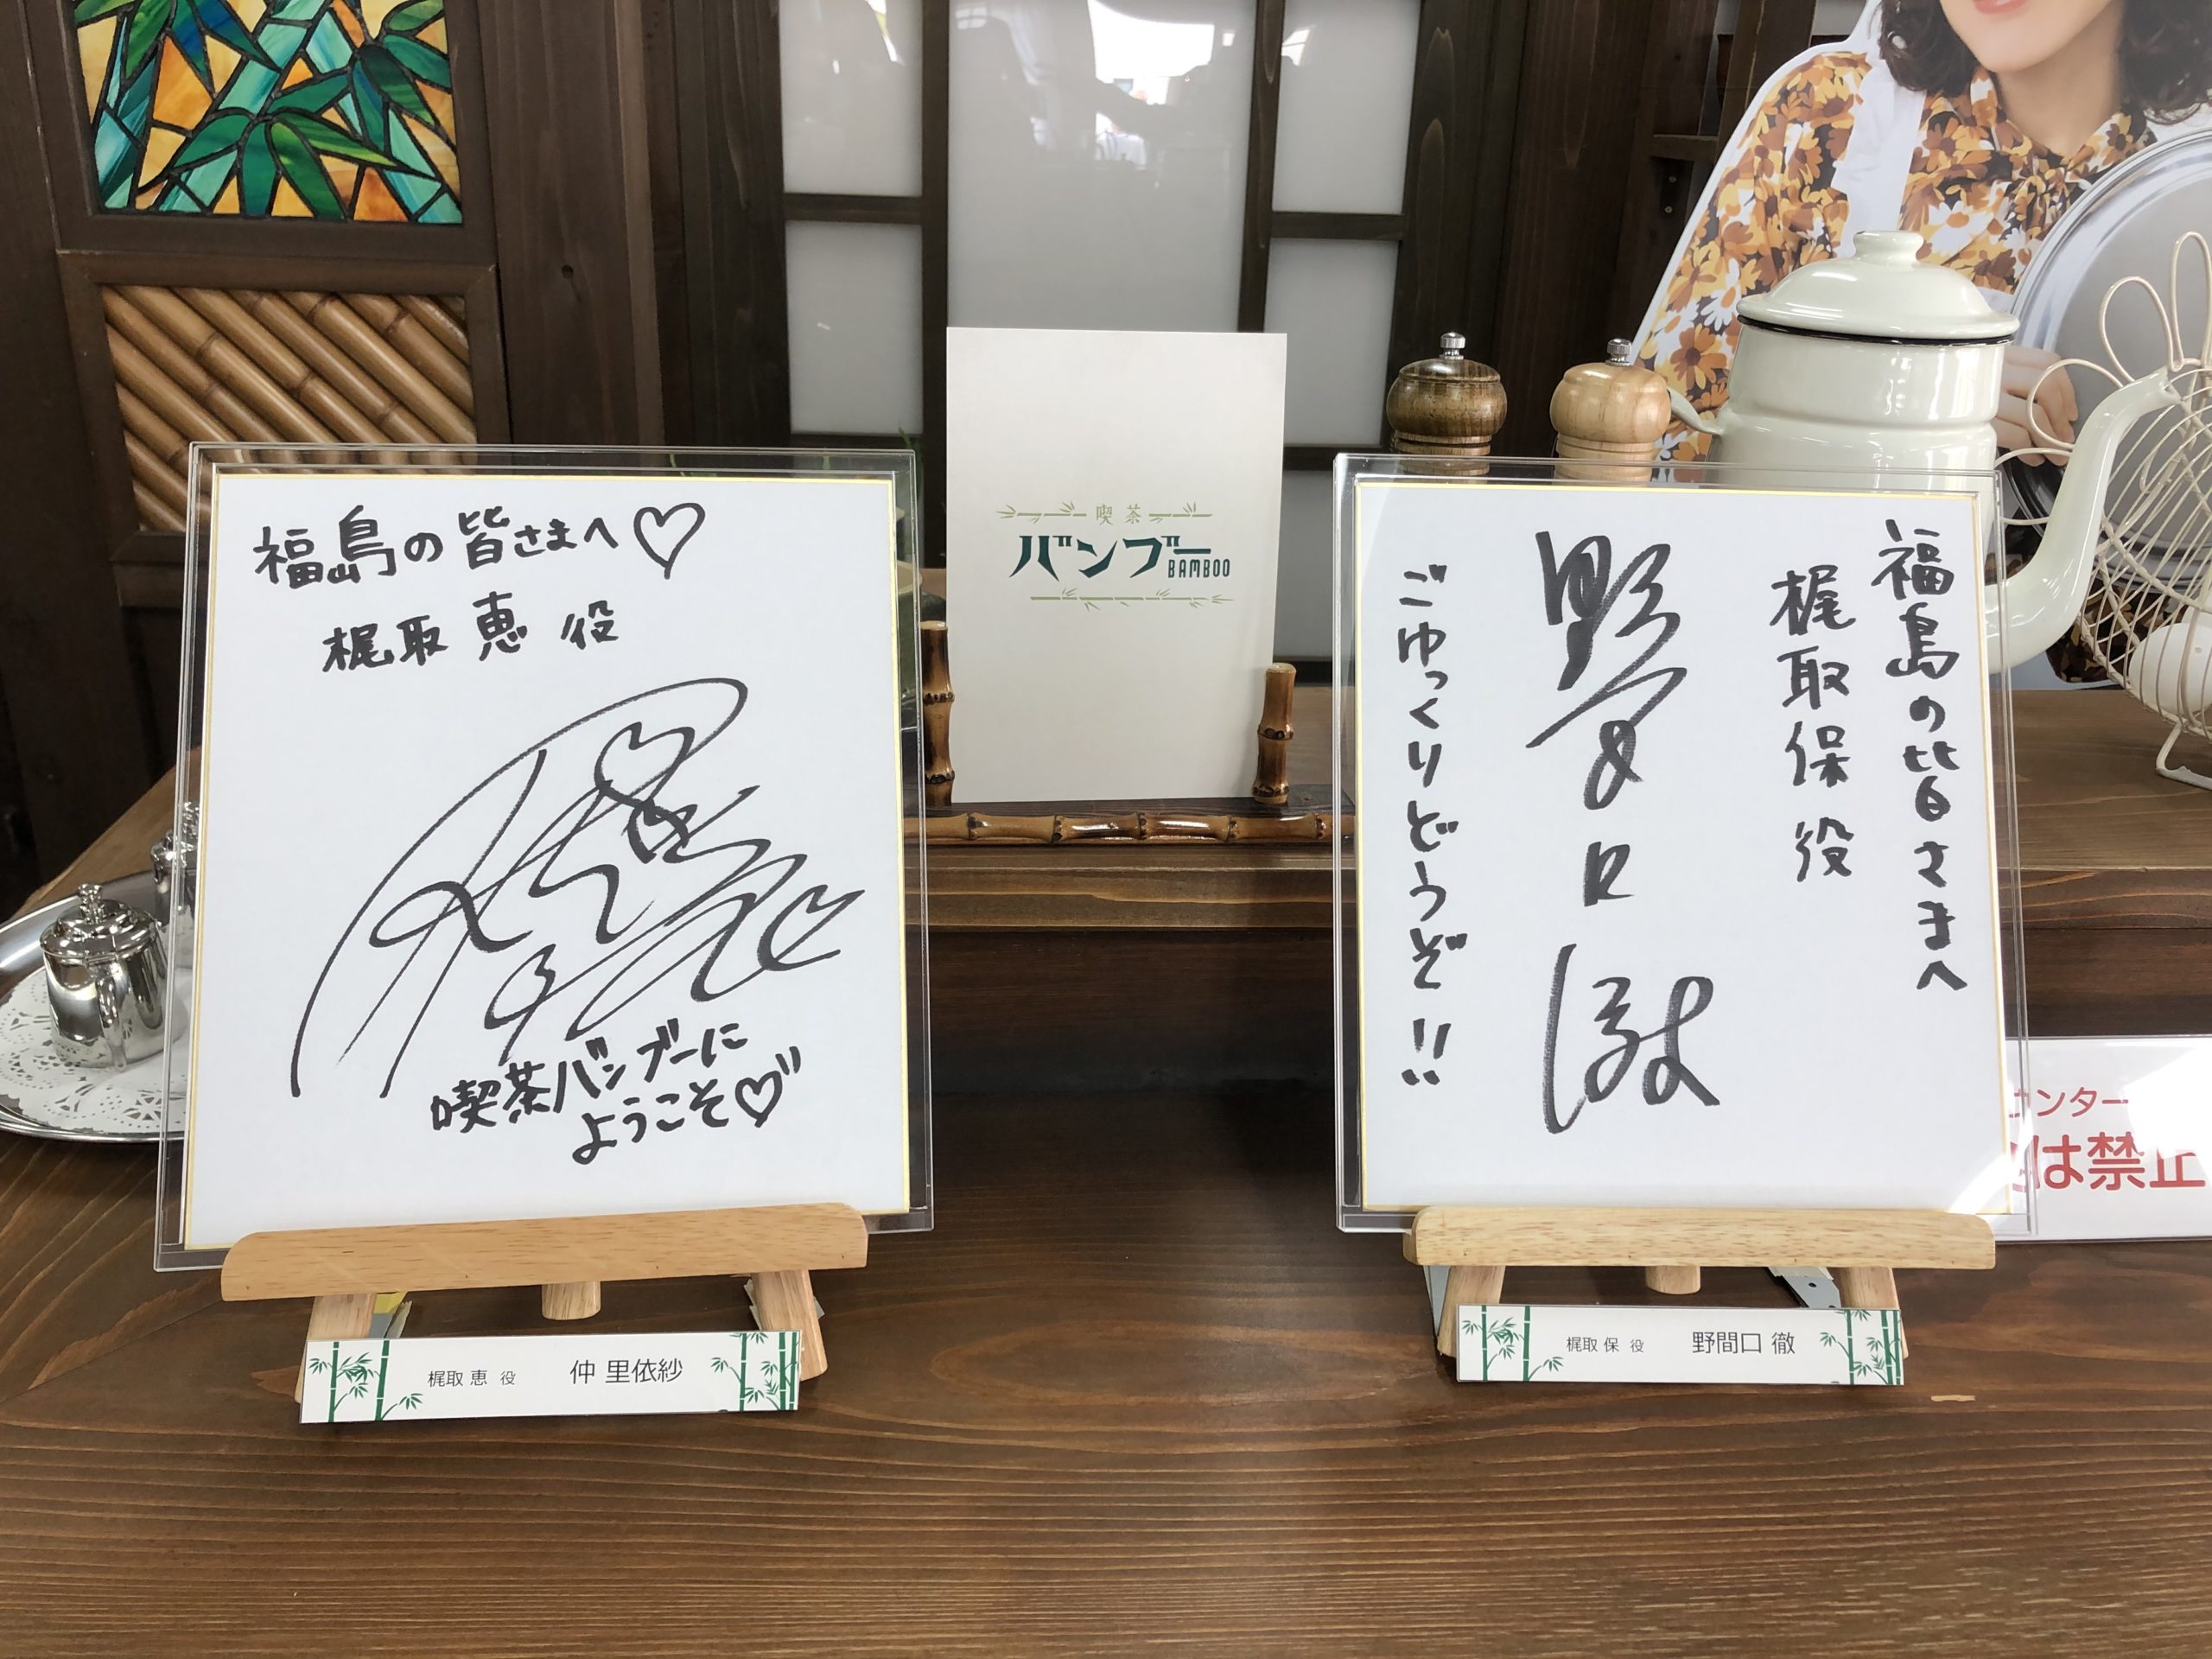 福島の皆さまへ♡
梶取 恵 役
喫茶バンブーに
ようこそ♡
梶取 恵 役 仲 里依紗
喫茶
バンブー
BAMBOO
福島の皆さまへ
梶取保役
野間口徹
ごゆっくりどうぞ!!
梶取 保 役 野間口 徹
ウンター
は禁止